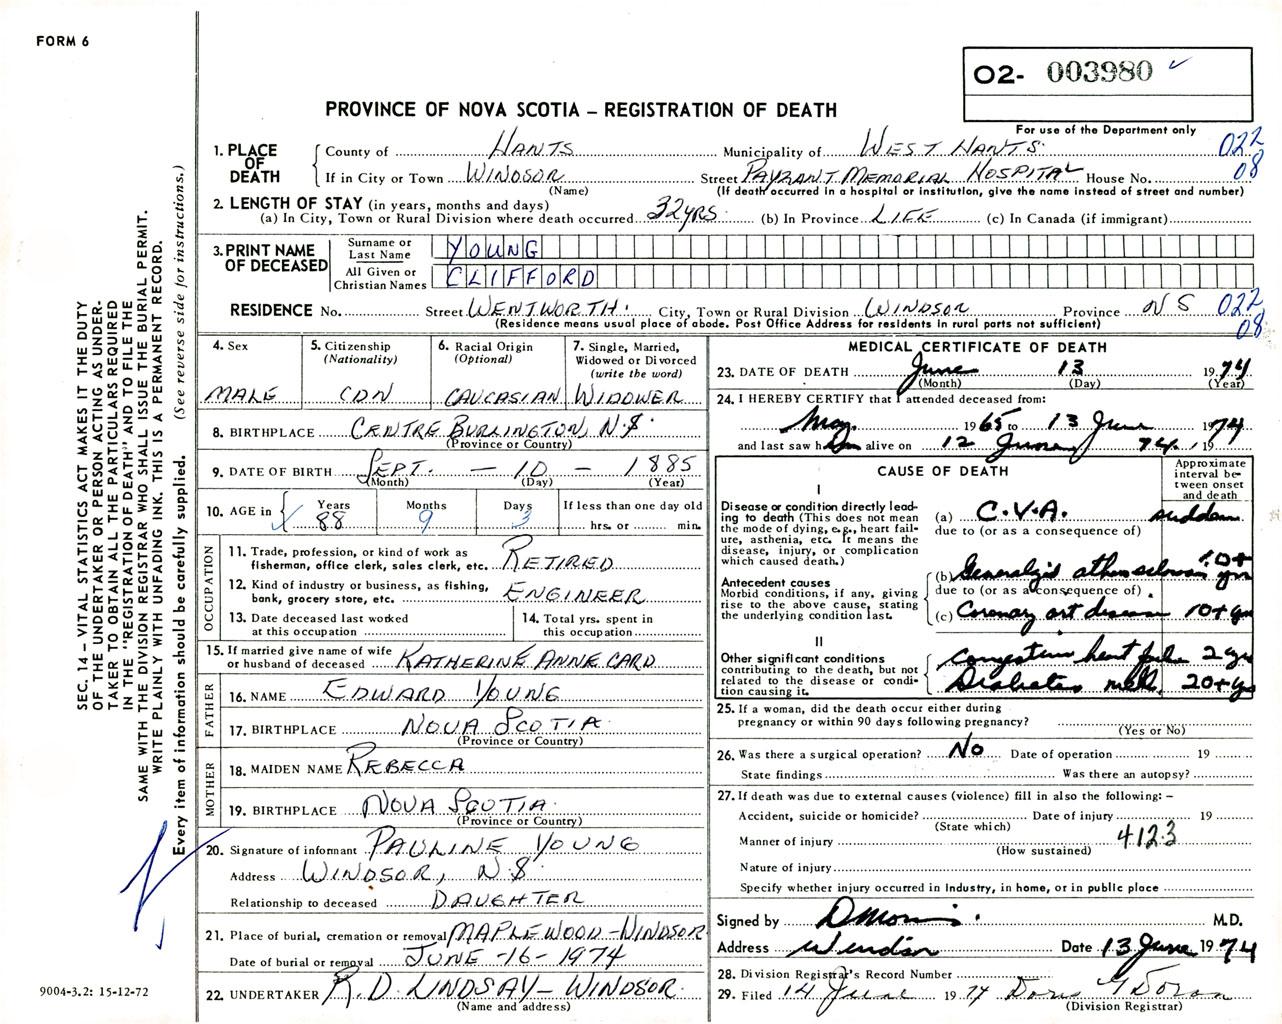 FORM 6
O2- 003980
PROVINCE OF NOVA SCOTIA – REGISTRATION OF DEATH
For use of the Department only
1. PLACE OF DEATH
County of HANTS Municipality of WEST HANTS 022
If in City or Town WINDSOR Street PAYZANT MEMORIAL HOSPITAL House No. 08
(Name) (If death occurred in a hospital or institution, give the name instead of street and number)
2. LENGTH OF STAY (in years, months and days)
(a) In City, Town or Rural Division where death occurred 32 YRS. (b) In Province LIFE (c) In Canada (if immigrant)
3. PRINT NAME OF DECEASED
Surname or Last Name YOUNG
All Given or Christian Names CLIFFORD
RESIDENCE No. Street WENTWORTH. City, Town or Rural Division WINDSOR Province N S 022
(Residence means usual place of abode. Post Office Address for residents in rural parts not sufficient) 08
4. Sex
MALE
5. Citizenship
(Nationality)
CDN
6. Racial Origin
(Optional)
CAUCASIAN
7. Single, Married, Widowed or Divorced
(write the word)
WIDOWER
8. BIRTHPLACE CENTRE BURLINGTON, N.S.
(Province or Country)
9. DATE OF BIRTH SEPT. – 10 – 1885
(Month) (Day) (Year)
10. AGE in
Years Months Days If less than one day old
88 9 3 hrs. or min.
OCCUPATION
11. Trade, profession, or kind of work as fisherman, office clerk, sales clerk, etc. RETIRED
12. Kind of industry or business, as fishing, bank, grocery store, etc. ENGINEER
13. Date deceased last worked at this occupation
14. Total yrs. spent in this occupation
15. If married give name of wife or husband of deceased KATHERINE ANNE CARD
FATHER
16. NAME EDWARD YOUNG
17. BIRTHPLACE NOVA SCOTIA
(Province or Country)
MOTHER
18. MAIDEN NAME REBECCA
19. BIRTHPLACE NOVA SCOTIA
(Province or Country)
20. Signature of informant PAULINE YOUNG
Address WINDSOR, N.S.
Relationship to deceased DAUGHTER
21. Place of burial, cremation or removal MAPLEWOOD-WINDSOR
Date of burial or removal JUNE -16- 1974
22. UNDERTAKER R.D. LINDSAY – WINDSOR.
(Name and address)
MEDICAL CERTIFICATE OF DEATH
23. DATE OF DEATH June 13 1974
(Month) (Day) (Year)
24. I HEREBY CERTIFY that I attended deceased from:
May 1965 to 13 June 1974
and last saw him alive on 12 June 74. 19
CAUSE OF DEATH
Approximate interval between onset and death
I
Disease or condition directly leading to death (This does not mean the mode of dying, e.g., heart failure, asthenia, etc. It means the disease, injury, or complication which caused death.)
(a) C.V.A. sudden
due to (or as a consequence of)
Antecedent causes
Morbid conditions, if any, giving rise to the above cause, stating the underlying condition last.
(b) 10+ yrs
due to (or as a consequence of)
(c) Coronary art disease 10+ yrs
II
Other significant conditions contributing to the death, but not related to the disease or condition causing it.
Congestive heart fail. 2 yrs
Diabetes mell. 20+ yrs
25. If a woman, did the death occur either during pregnancy or within 90 days following pregnancy?
(Yes or No)
26. Was there a surgical operation? No Date of operation 19
State findings Was there an autopsy?
27. If death was due to external causes (violence) fill in also the following: –
Accident, suicide or homicide? Date of injury 19
(State which)
Manner of injury 4123
(How sustained)
Nature of injury
Specify whether injury occurred in Industry, in home, or in public place
Signed by M.D.
Address Windsor Date 13 June 1974
28. Division Registrar's Record Number
29. Filed 14 June 1974 Doris Doran
(Division Registrar)
SEC. 14 – VITAL STATISTICS ACT MAKES IT THE DUTY
OF THE UNDERTAKER OR PERSON ACTING AS UNDER-
TAKER TO OBTAIN ALL THE PARTICULARS REQUIRED
IN THE "REGISTRATION OF DEATH" AND TO FILE THE
SAME WITH THE DIVISION REGISTRAR WHO SHALL ISSUE THE BURIAL PERMIT.
WRITE PLAINLY WITH UNFADING INK. THIS IS A PERMANENT RECORD.
Every item of information should be carefully supplied. (See reverse side for instructions.)
9004-3.2: 15-12-72